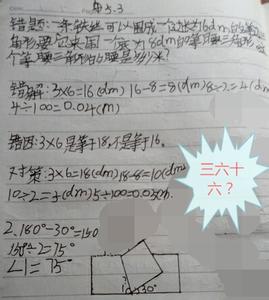 错题:一条铁丝可以围成一个边长为6dm的等边三
角形,要它来围一底为8dm的等腰三角形,
个等腰三角形的腰是多少米?
错解:3×6=16(dm) 16-8=8(dm)8÷2=4(dm
4÷100=0.04(m)
错因:3×6是等于18,不是等于16。
对策:3×6=18(dm)18-8=10(dm)
10÷2=5(dm)5÷100=0.05m.
三六十
六?
2.180°-30°=150
150°÷2=75°
∠1=75°
30°